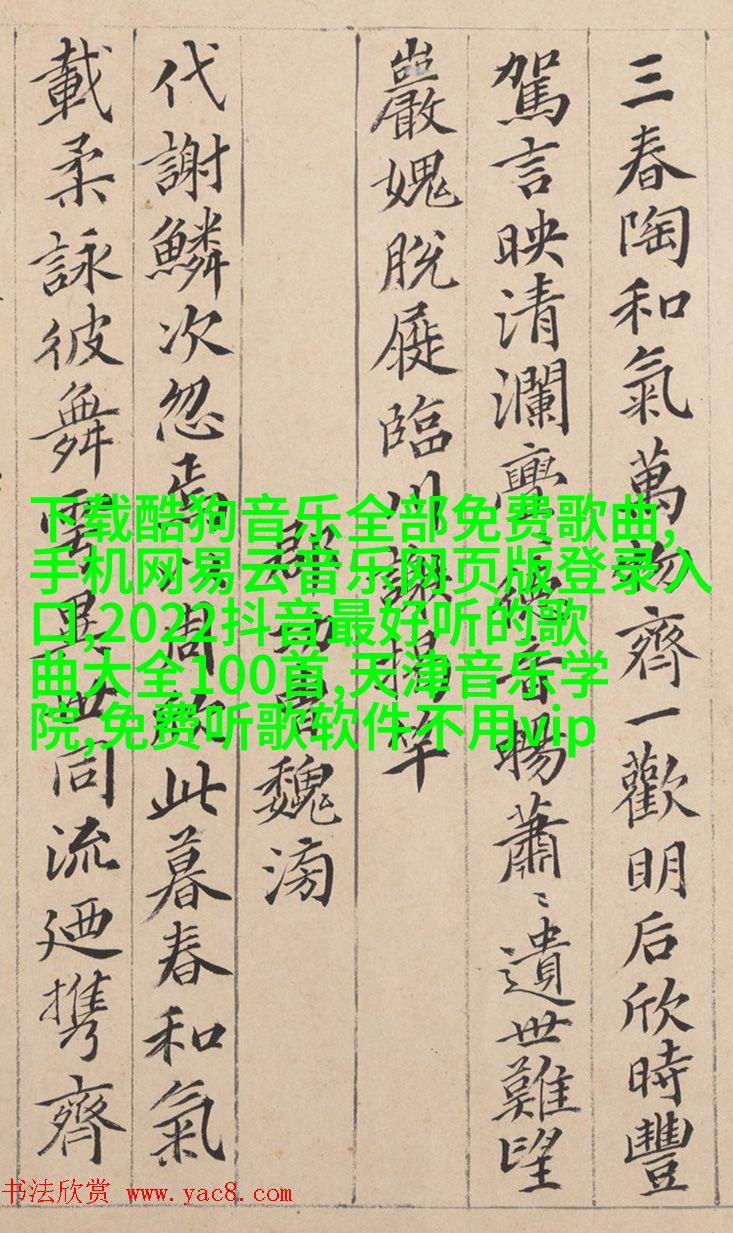 三春陶和氣萬物齊一歡明后欣時豐
駕言映清瀾亹〻德音暢蕭〻遺世難望
巖愧脫屣臨川謝揭竿
郡功曹魏滂
代謝鱗次忽焉以周欣此暮春和氣
載柔詠彼舞雩異世同流廼携齊
下载酷狗音乐全部免费歌曲,
手机网易云音乐网页版登录入
口,2022抖音最好听的歌
曲大全100首,天津音乐学
院,免费听歌软件不用vip
书法欣赏 www.yac8.com